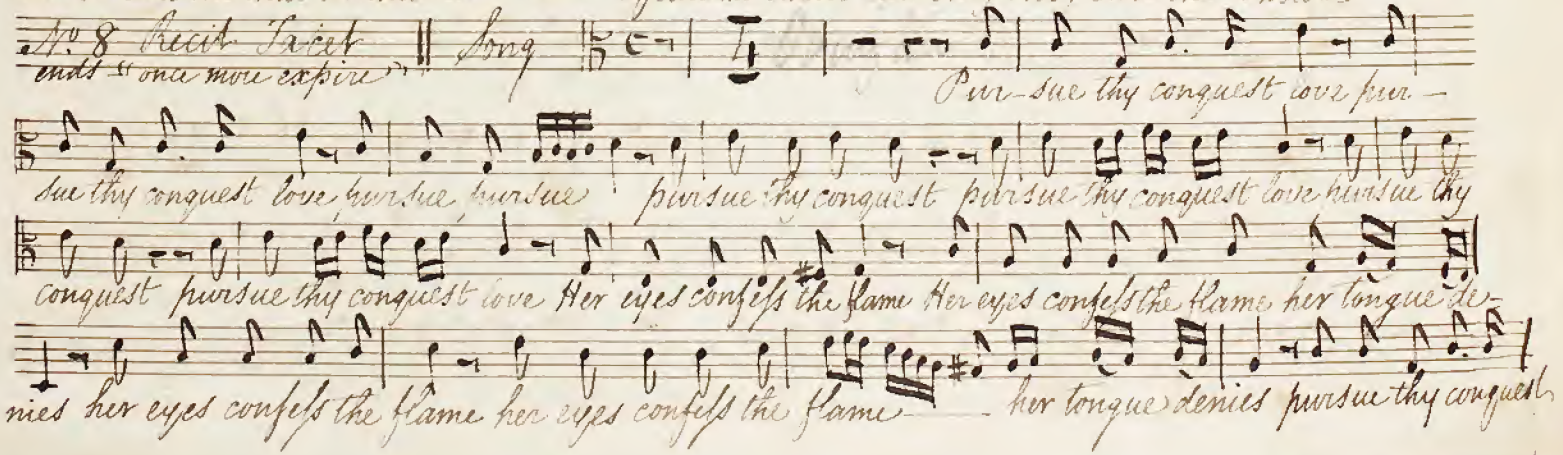 No. 8 Recit Tacet Song
ends "once more expire"
Pur-sue thy conquest love pur-
sue thy conquest love pursue, pursue pursue thy conquest pursue thy conquest love pursue thy
conquest pursue thy conquest love Her eyes confess the flame Her eyes confess the flame her tongue de-
nies her eyes confess the flame her eyes confess the flame her tongue denies pursue thy conquest